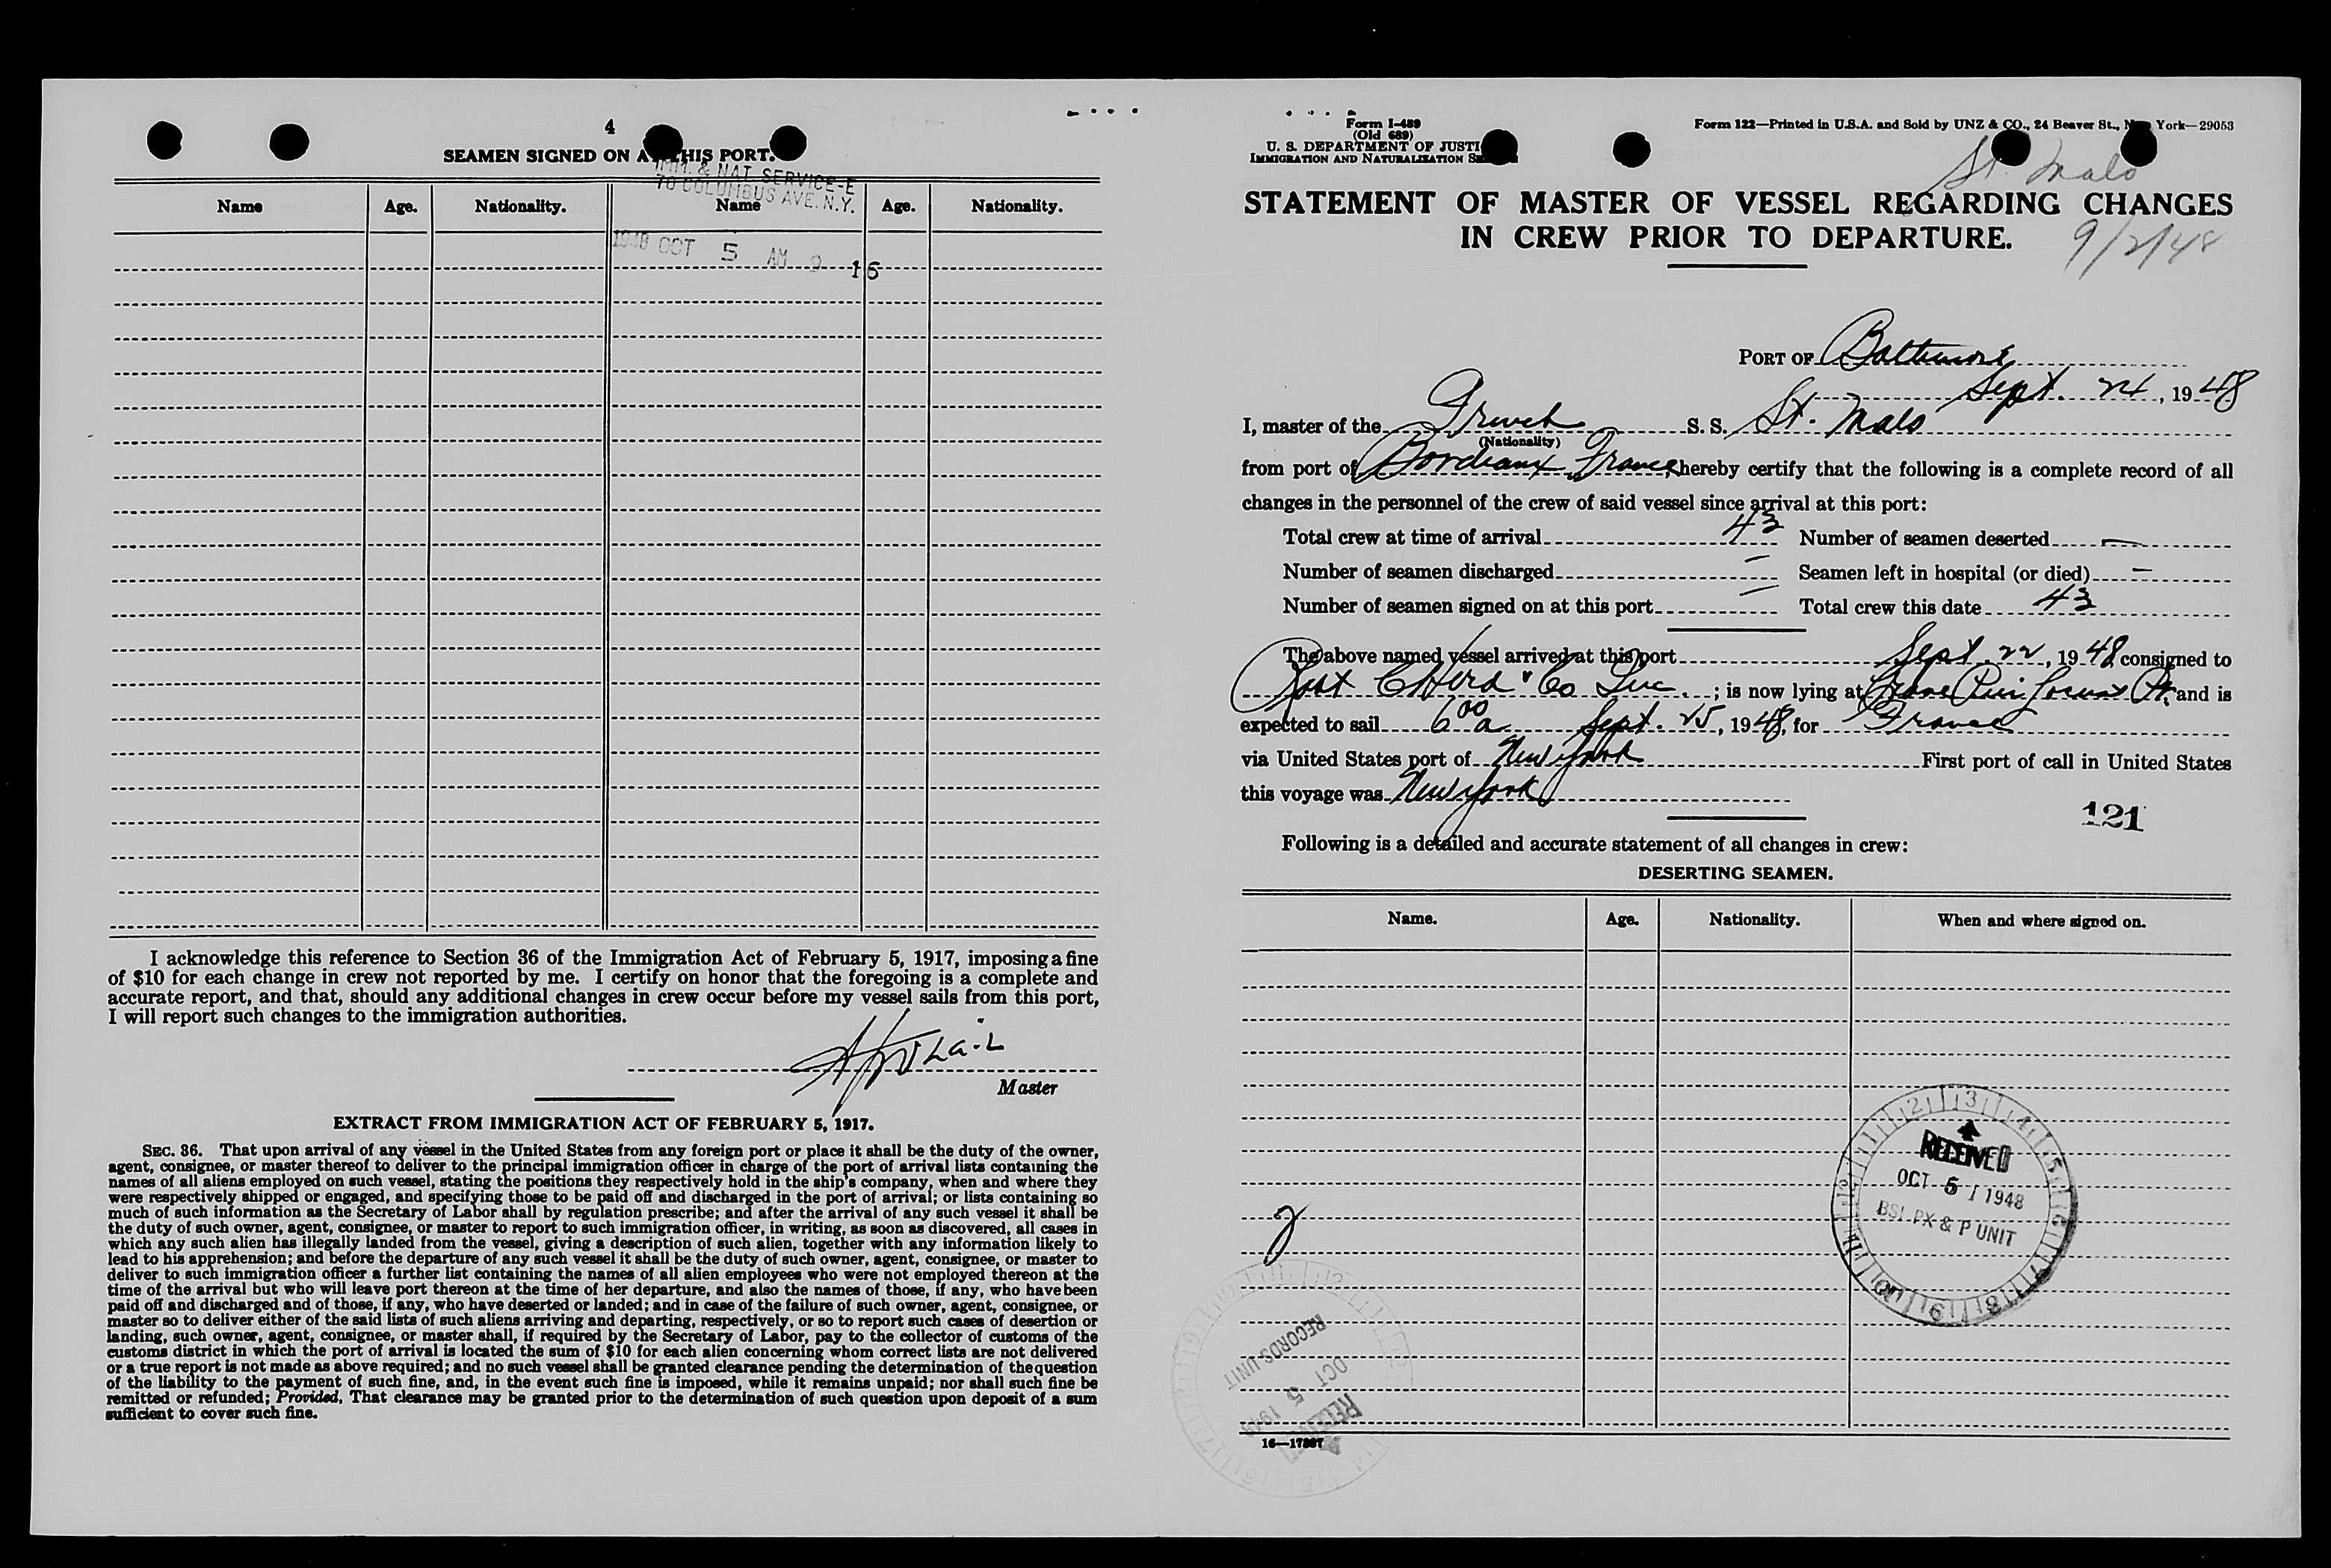 4
SEAMEN SIGNED ON A THIS PORT.
IMM. & NAT. SERVICE-E
70 COLUMBUS AVE. N.Y.
Name Age. Nationality. Name Age. Nationality.
1948 OCT 5 AM 9 16
I acknowledge this reference to Section 36 of the Immigration Act of February 5, 1917, imposing a fine
of $10 for each change in crew not reported by me. I certify on honor that the foregoing is a complete and
accurate report, and that, should any additional changes in crew occur before my vessel sails from this port,
I will report such changes to the immigration authorities.
Master
EXTRACT FROM IMMIGRATION ACT OF FEBRUARY 5, 1917.
SEC. 36. That upon arrival of any vessel in the United States from any foreign port or place it shall be the duty of the owner,
agent, consignee, or master thereof to deliver to the principal immigration officer in charge of the port of arrival lists containing the
names of all aliens employed on such vessel, stating the positions they respectively hold in the ship's company, when and where they
were respectively shipped or engaged, and specifying those to be paid off and discharged in the port of arrival; or lists containing so
much of such information as the Secretary of Labor shall by regulation prescribe; and after the arrival of any such vessel it shall be
the duty of such owner, agent, consignee, or master to report to such immigration officer, in writing, as soon as discovered, all cases in
which any such alien has illegally landed from the vessel, giving a description of such alien, together with any information likely to
lead to his apprehension; and before the departure of any such vessel it shall be the duty of such owner, agent, consignee, or master to
deliver to such immigration officer a further list containing the names of all alien employees who were not employed thereon at the
time of the arrival but who will leave port thereon at the time of her departure, and also the names of those, if any, who have been
paid off and discharged and of those, if any, who have deserted or landed; and in case of the failure of such owner, agent, consignee, or
master so to deliver either of the said lists of such aliens arriving and departing, respectively, or so to report such cases of desertion or
landing, such owner, agent, consignee, or master shall, if required by the Secretary of Labor, pay to the collector of customs of the
customs district in which the port of arrival is located the sum of $10 for each alien concerning whom correct lists are not delivered
or a true report is not made as above required; and no such vessel shall be granted clearance pending the determination of the question
of the liability to the payment of such fine, and, in the event such fine is imposed, while it remains unpaid; nor shall such fine be
remitted or refunded; Provided, That clearance may be granted prior to the determination of such question upon deposit of a sum
sufficient to cover such fine.
Form I-489
(Old 689)
U. S. DEPARTMENT OF JUSTI
IMMIGRATION AND NATURALIZATION S
Form 122—Printed in U.S.A. and Sold by UNZ & CO., 24 Beaver St., N York—29053
St. Malo
STATEMENT OF MASTER OF VESSEL REGARDING CHANGES
IN CREW PRIOR TO DEPARTURE.
9/2/48
PORT OF Baltimore
Sept. 24, 1948
I, master of the French S. S. St. Malo
(Nationality)
from port of Bordeaux France, hereby certify that the following is a complete record of all
changes in the personnel of the crew of said vessel since arrival at this port:
Total crew at time of arrival 43 Number of seamen deserted —
Number of seamen discharged — Seamen left in hospital (or died) —
Number of seamen signed on at this port — Total crew this date 43
The above named vessel arrived at this port Sept. 22, 1948, consigned to
Co Inc. ; is now lying at Pier Locust Pt. and is
expected to sail 6 00 a Sept. 25, 1948, for France
via United States port of New York First port of call in United States
this voyage was New York
121
Following is a detailed and accurate statement of all changes in crew:
DESERTING SEAMEN.
Name. Age. Nationality. When and where signed on.
RECEIVED
OCT 5 1948
BSI PX & P UNIT
RECEIVED
OCT 5 1948
RECORDS UNIT
16—17887